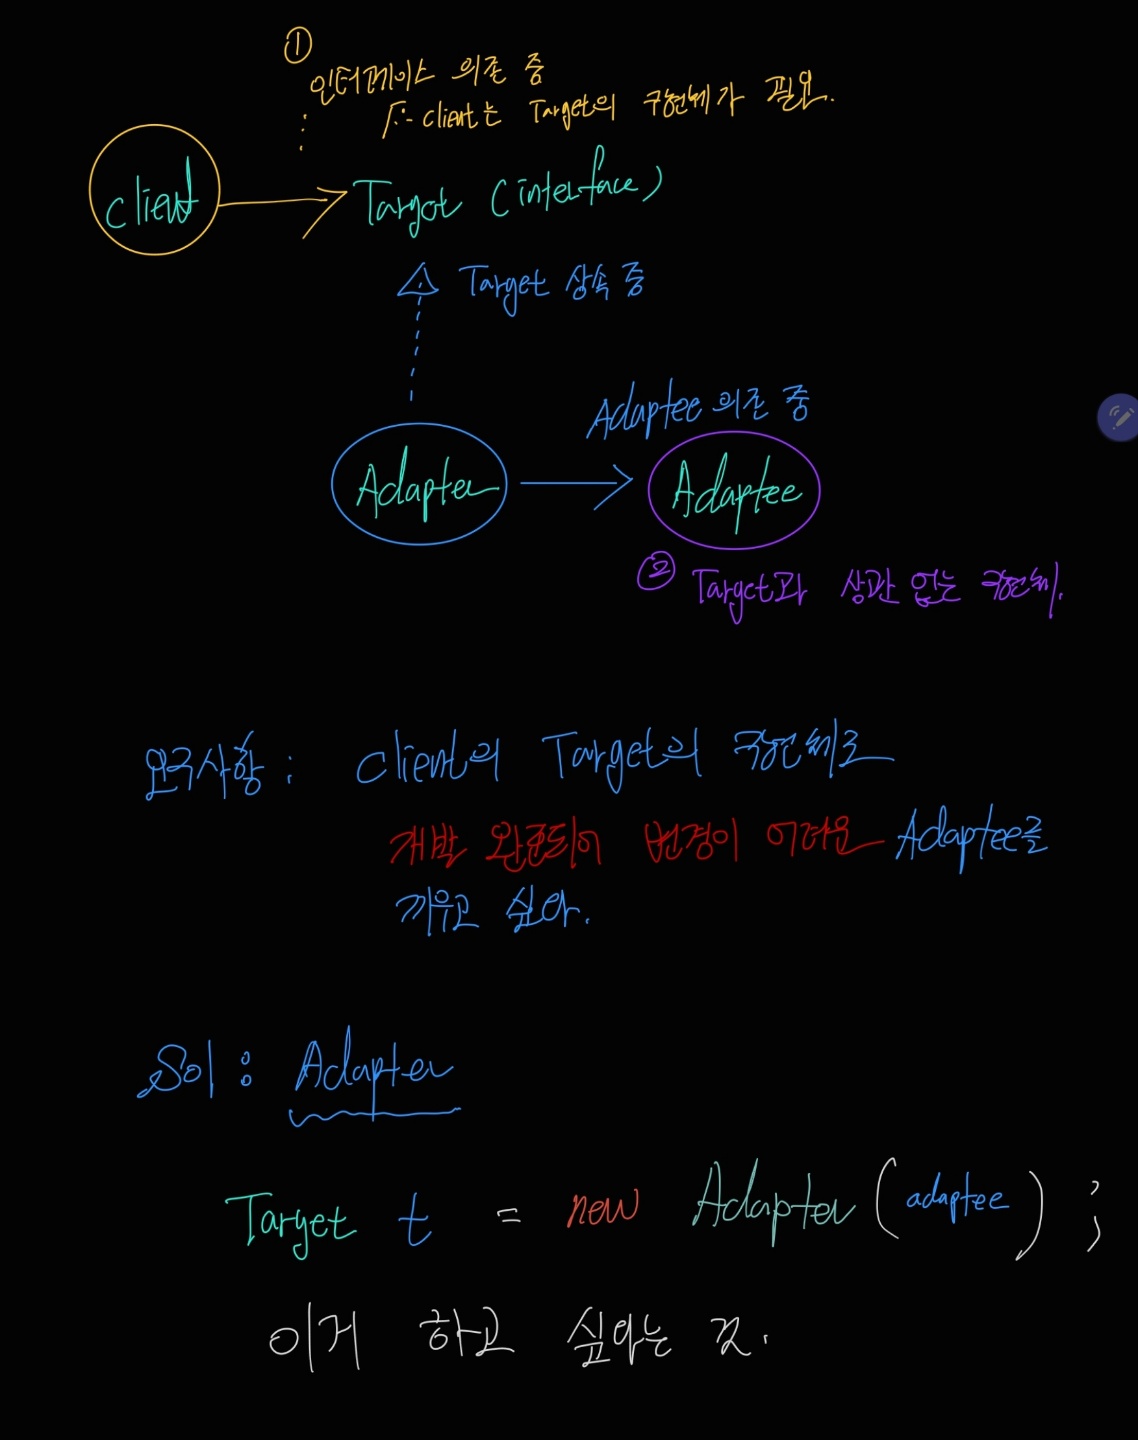 ①
인터페이스 의존 중
∴ client는 Target의 구현체가 필요.
client
Target (interface)
Target 상속 중
Adaptee 의존 중
Adapter
Adaptee
②
Target과 상관 없는 구현체.
요구사항 : client의 Target의 구현체로
개발 완료되어 변경이 어려운 Adaptee를
끼우고 싶다.
Sol : Adapter
Target t = new Adapter(adaptee);
이게 하고 싶다는 것.